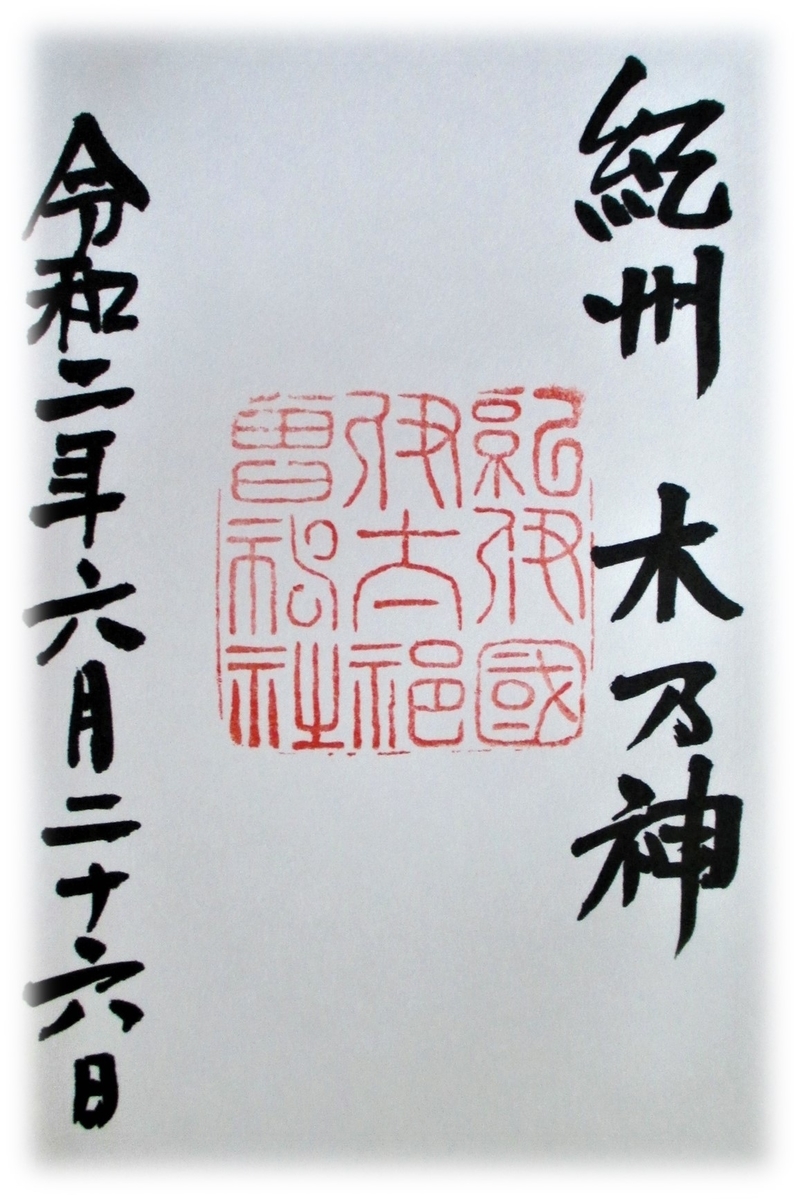 紀州 木乃神
紀伊國
伊太祁
曽神社
令和二年六月二十六日